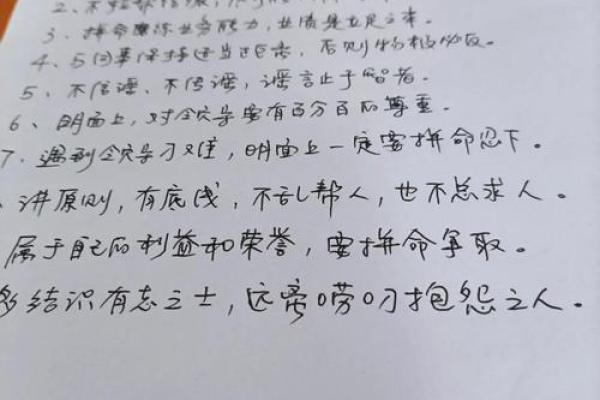 2、不
3、拼命磨练业务能力,业绩是立足之本。
4、与同事保持适当距离,否则物极必反。
5、不信谣、不传谣,谣言止于智者。
6、明面上,对领导要有百分百的尊重。
7、遇到领导刁难,明面上一定要拼命忍下。
、讲原则,有底线,不乱帮人,也不总求人。
属于自己的利益和荣誉,要拼命争取。
多结识有志之士,远离唠叨抱怨之人。